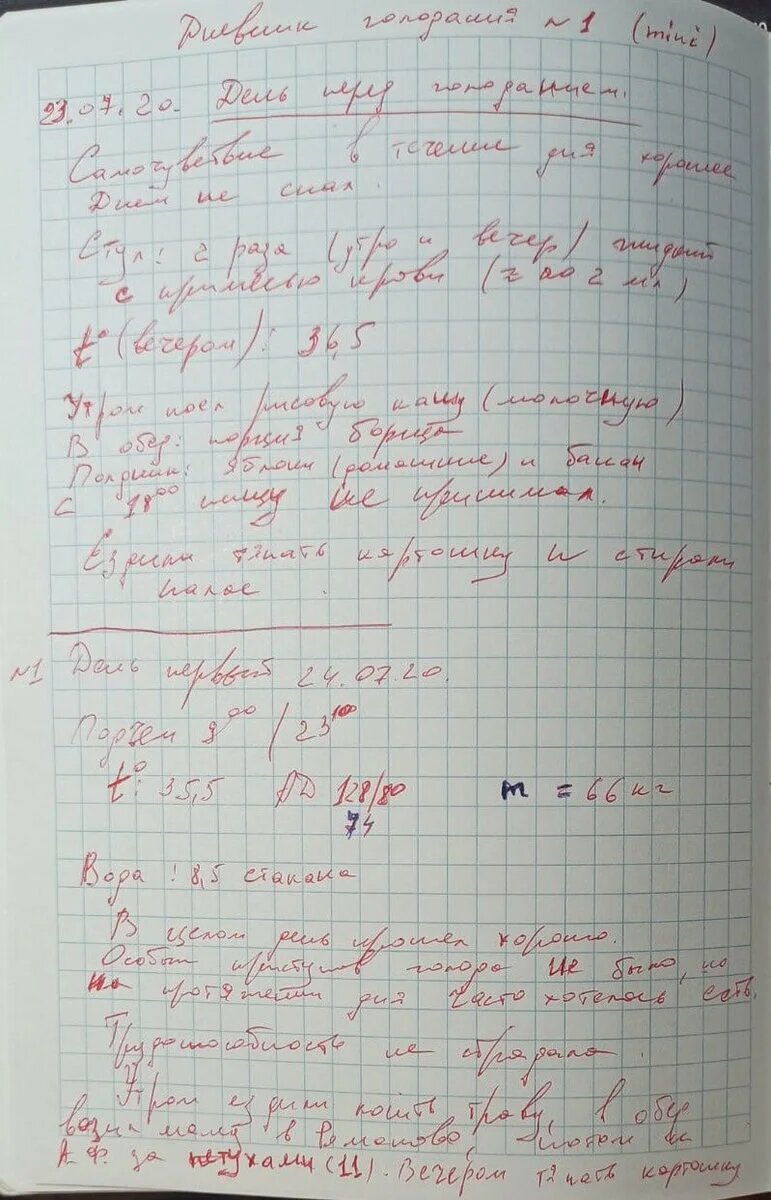 Дневник голодания №1 (mini)
23.07.20. День перед голоданием.
Самочувствие в течение дня хорошее
Днём не спал.
Стул: 2 раза (утро и вечер) жидкий
с примесью крови (≈ до 2 мл)
t° (вечером): 36,5
Утром поел рисовую кашу (молочную)
В обед: порция борща
Полдник: яблоки (домашние) и банан
С 18⁰⁰ пищу не принимал.
Ездили тяпать картошку и стирали
палас.
№1 День первый 24.07.20.
Подъем 9⁰⁰ / 23¹⁰⁰
t°: 35,5 АД 128/80 m = 66 кг
74
Вода: 8,5 стакана
В целом день прошел хорошо.
Особых приступов голода не было, но
на протяжении дня часто хотелось есть.
Трудоспособность не страдала.
Утром ездили косить траву, в обед
возил маму в , потом к
А.Ф. за петухами (11). Вечером тяпать картошку